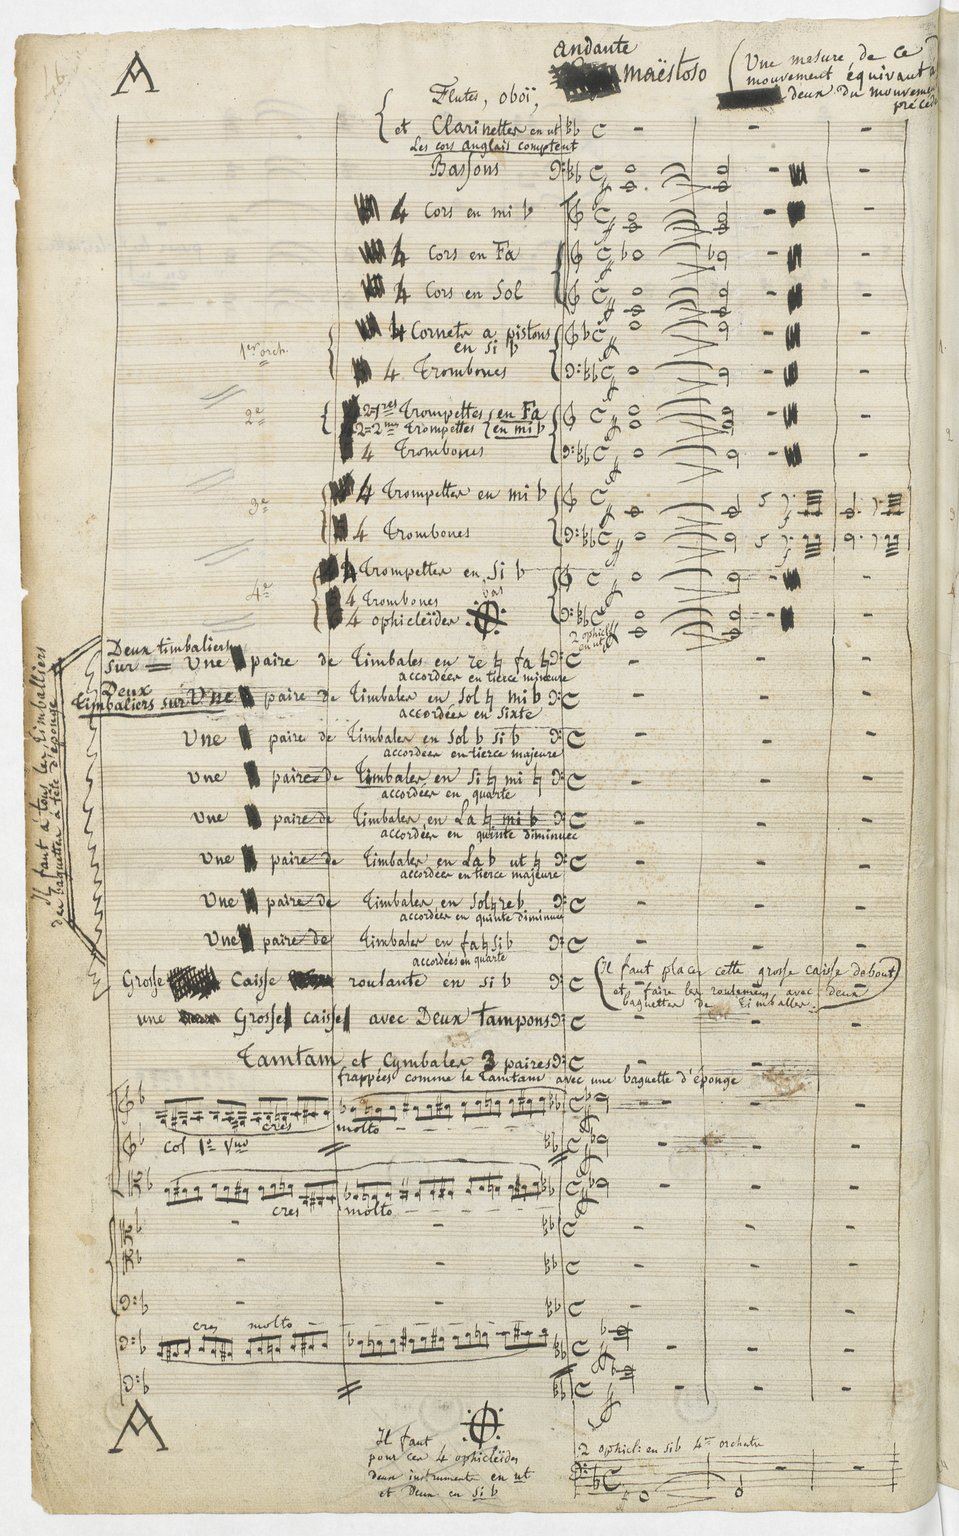 A
andante
maëstoso
(Une mesure de ce
mouvement équivaut à
deux du mouvement
précéd
Flutes, oboï,
et Clarinettes en ut
Les cors anglais comptent
Bassons
4 Cors en mi b
4 Cors en Fa
4 Cors en Sol
1er orch.
4 Cornets a pistons
en si b
4 Trombones
2e
2=1res Trompettes en Fa
2=2mes Trompettes en mi b
4 Trombones
3e
4 Trompettes en mi b
4 Trombones
4e
4 Trompettes en si b
bas
4 Trombones
4 ophicleïdes
2 ophicl:
en ut
Deux timbaliers
sur = Une paire de Timbales en re ♮ fa ♮
accordées en tierce mineure
Deux
timbaliers sur Une paire de Timbales en sol ♮ mi b
accordées en sixte
Une paire de Timbales en sol b si b
accordées en tierce majeure
Une paire de Timbales en si ♮ mi ♮
accordées en quarte
Une paire de Timbales en La ♮ mi b
accordées en quinte diminuée
Une paire de Timbales en La b ut ♮
accordées en tierce majeure
Une paire de Timbales en sol ♮ re b
accordées en quinte diminuée
Une paire de Timbales en fa ♮ si b
accordées en quarte
Il faut a tous les timballiers
des baguettes à tête d'éponge
Grosse Caisse roulante en si b
(Il faut placer cette grosse caisse debout
et faire les roulemens avec deux
baguettes de timballes.)
une Grosse caisse avec Deux tampons
Tamtam et Cymbales 3 paires
frappées comme le Tamtam avec une baguette d'éponge
cres molto
col 1o Vno
cres molto
cres molto
A
Il faut
pour ces 4 ophicleïdes
deux instruments en ut
et Deux en si b
2 ophicl: en si b 4me orchestre